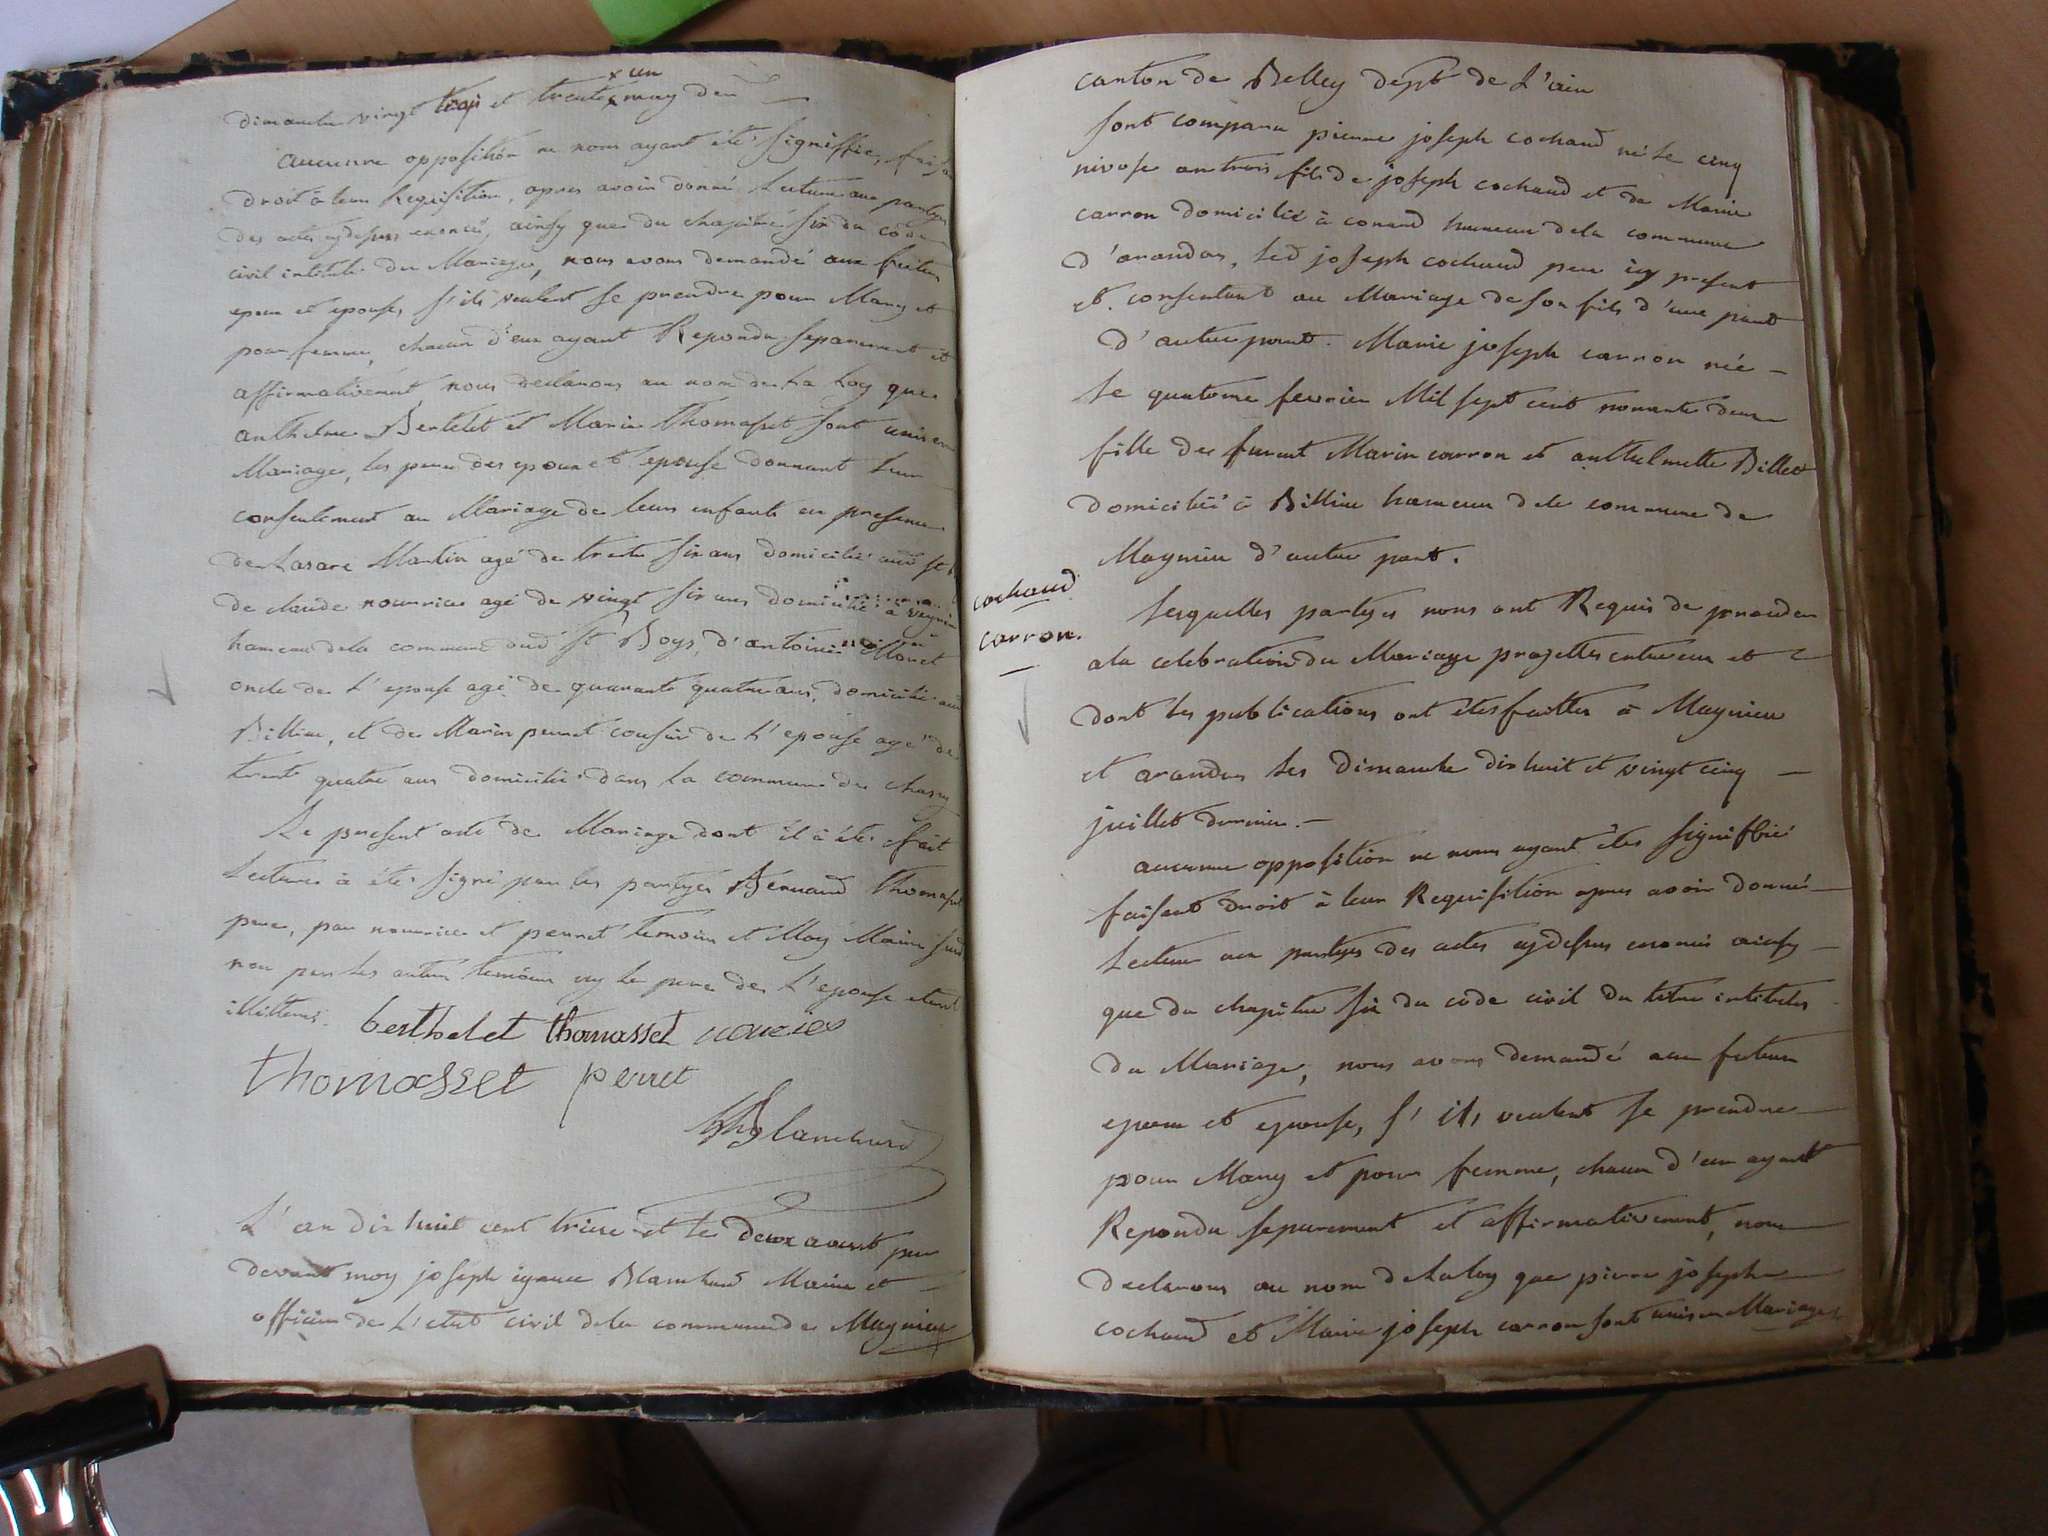 dimanche vingt trois et trente x un may der
aucunne opposition ne nous ayant étés signiffiée, faisa
droit à leur Requisition, apres avoir donné Lecture aux partyes
des actes cydessus enoncés, ainsy que du chapitre six du code
civil intitulé du Mariage, nous avons demandé aux futeurs
epoux et epouse, s'ils veulent se prendre pour Mary et
pour femme, chacun d'eux ayant Repondu separement et
affirmativement, nous declarons au nom de La Loy que
anthelme Bertelet et Marie thomasset sont unis en
Mariage, les peres des epoux et epouse donnant leur
consentement au Mariage de leurs enfants en presence
de Lasare Martin agé de trente six ans domicilié audit st
de claude nourrice agé de vingt six ans domicilié à veyrin
hameau dela commune dud st Boys, d'antoine Monet
oncle de L'epouse agé de quarante quatre ans, domicilié aud
Billieu, et de Marin perret cousin de L'epouse agé de
trente quatre ans domicilié dans la commune de chasey
Le present acte de Mariage dont il à été fait
Lecture à étés signé par les partyes Bernard thomasset
pere, par nourrice et perret temoins et Moy Maire sud
non par les autres temoins ny le pere de L'epouse etant
illitterés. berthelet thomasset
thomasset perret
Blanchard
L'an dix huit cent treize et le deux aoust par
devant moy joseph ignace Blanchard Maire et
officier de L'etat civil dela commune de Magnieu
canton de Belley dept de L'ain
sont comparu pierre joseph cochaud né le cinq
nivose an trois fils de joseph cochaud et de Marie
carron domicilié à conand hameau dela commune
d'arandas, led joseph cochaud pere icy present
et consentant au Mariage de son fils d'une part
d'autre part. Marie joseph carron née
le quatorze fevrier Mil sept cent nonante deux
fille de furent Marin carron et anthelmette Billiet
domicilié à Billieu hameau dela commune de
Magnieu d'autre part.
cochaud
carron.
Lesquelles partyes nous ont Requis de proceder
a la celebration du Mariage projettés entre eux et
dont les publications ont etés faittes à Magnieu
et arandas les dimanche dix huit et vingt cinq
juillet dernier.
aucunne opposition ne nous ayant étés signiffiée
faisant droit à leur Requisition apres avoir donné
Lecture aux partyes des actes cydessus enoncés ainsy
que du chapitre six du code civil du titre intitulés
du Mariage, nous avons demandé aux futeurs
epoux et epouse, s'ils veulent se prendre
pour Mary et pour femme, chacun d'eux ayant
Repondu separement et affirmativement, nous
declarons au nom de la loy que pierre joseph
cochaud et Marie joseph carron sont unis en Mariage,